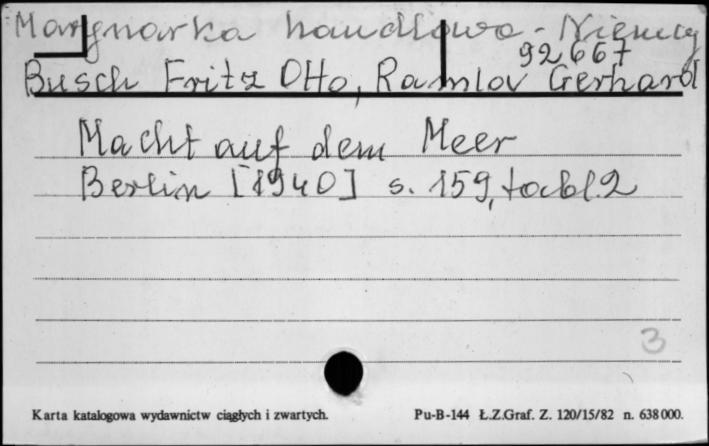 Marynarka handlowa - Niemcy
92667
Busch Fritz Otto, Ramlov Gerhard
Macht auf dem Meer
Berlin [1940] s. 159, tabl. 2
3
Karta katalogowa wydawnictw ciągłych i zwartych.
Pu-B-144 Ł.Z.Graf. Z. 120/15/82 n. 638000.